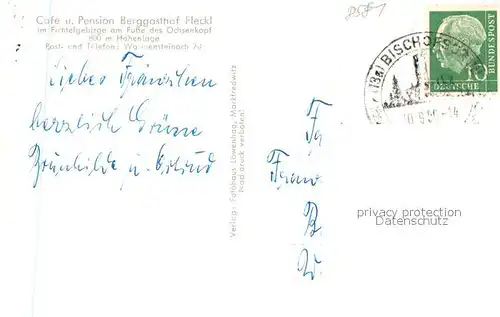 Café u. Pension Berggasthof Fleckl
im Fichtelgebirge am Fuße des Ochsenkopf
800 m Höhenlage
Post- und Telefon: Warmensteinach 70
Liebes
herzlich Grüsse
Brünhilde u.
Verlag: Fotohaus Löwenhag, Marktredwitz
Nachdruck verboten!
8581
(13a) BISCHOFSG
10
DEUTSCHE
BUNDESPOST
Frau
B
privacy protection
Datenschutz